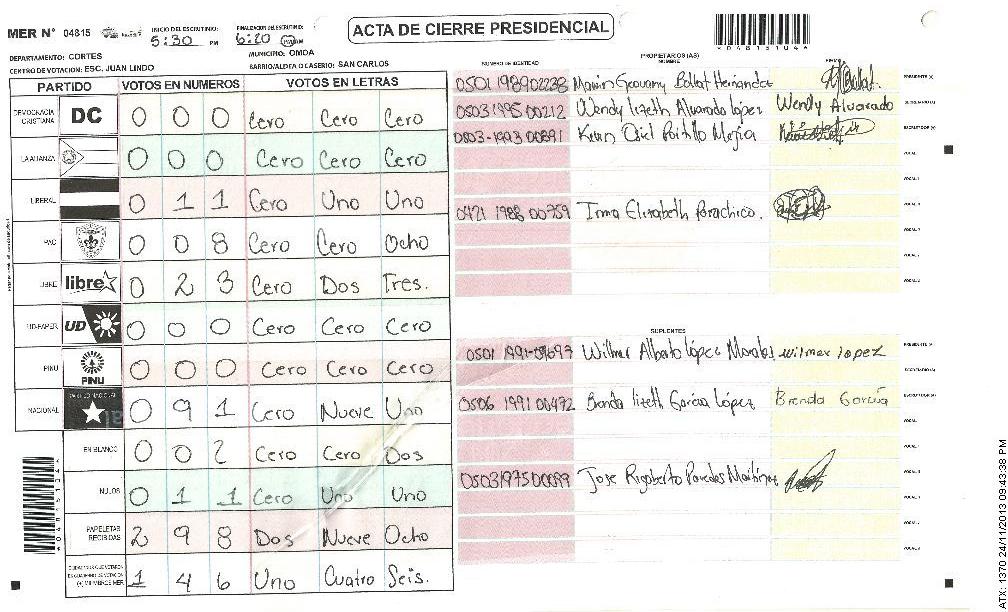 MER N° 04815
INICIO DEL ESCRUTINIO: 5:30 PM
FINALIZACION DEL ESCRUTINIO: 6:20 PM
ACTA DE CIERRE PRESIDENCIAL
DEPARTAMENTO: CORTES
MUNICIPIO: OMOA
CENTRO DE VOTACION: ESC. JUAN LINDO
BARRIO/ALDEA O CASERIO: SAN CARLOS
PARTIDO VOTOS EN NUMEROS VOTOS EN LETRAS
DEMOCRACIA CRISTIANA DC 0 0 0 Cero Cero Cero
LA ALIANZA 0 0 0 Cero Cero Cero
LIBERAL 0 1 1 Cero Uno Uno
PAC 0 0 8 Cero Cero Ocho
LIBRE libre 0 2 3 Cero Dos Tres.
UD-FAPER UD 0 0 0 Cero Cero Cero
PINU PINU 0 0 0 Cero Cero Cero
NACIONAL PARTIDO NACIONAL 0 9 1 Cero Nueve Uno
EN BLANCO 0 0 2 Cero Cero Dos
NULOS 0 1 1 Cero Uno Uno
PAPELETAS RECIBIDAS 2 9 8 Dos Nueve Ocho
1 4 6 Uno Cuatro Seis.
PROPIETARIOS (AS)
NUMERO DE IDENTIDAD NOMBRE FIRMA
0501 198902238 PRESIDENTE (A)
0503 1995 00212 Wendy lizeth Alvarado lópez Wendy Alvarado SECRETARIO (A)
0503-1993 00891 ESCRUTADOR (A)
0421 1988 00759 Irma Elizabeth
SUPLENTES
0501 1991- Wilmer Alberto lópez Morales wilmer lopez PRESIDENTE (A)
SECRETARIO (A)
0506 1991 00472 Brenda lizeth García López Brenda García ESCRUTADOR (A)
0503 1975 Jose Rigoberto Paredes Martinez
ATX: 1370 24/11/2013 09:43:38 PM